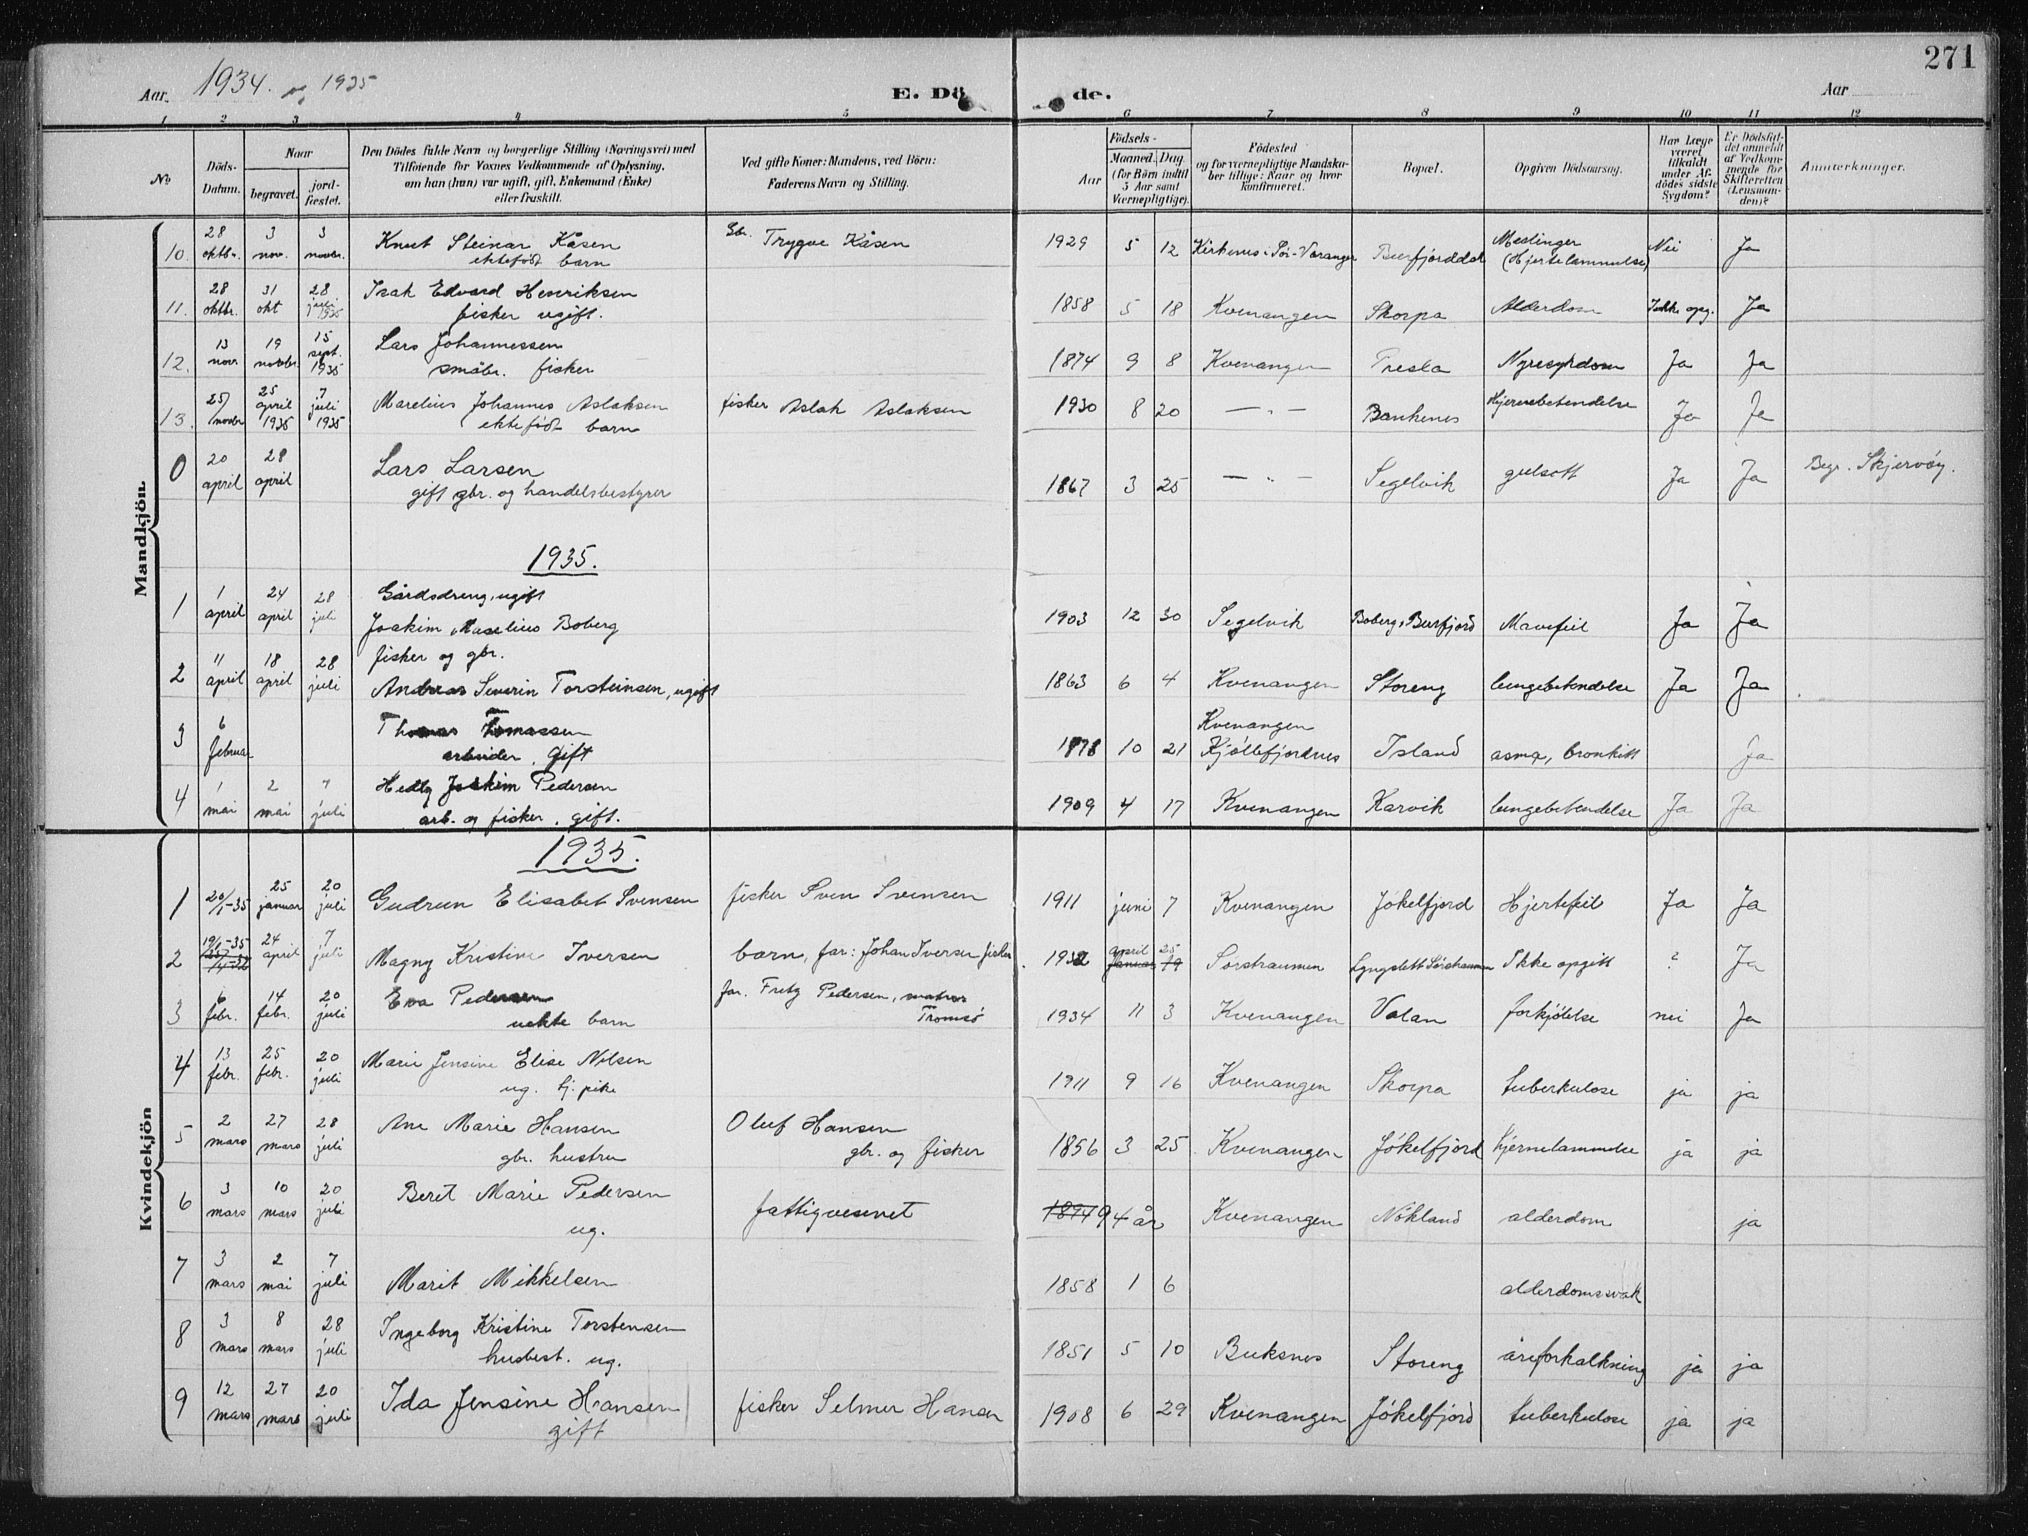 271
Aar. 1934. og 1935
E. Dö de.
Aar
1 2 3 4 5 6 7 8 9 10 11 12
No
Döds-Datum.
Naar
begravet.
jord-fæstet.
Den Dödes fulde Navn og borgerlige Stilling (Næringsvei) med
Tilföiende for Voxnes Vedkommende af Oplysning,
om han (hun) var ugift, gift, Enkemand (Enke)
eller fraskilt.
Ved gifte Koner: Mandens, ved Börn:
Faderens Navn og Stilling.
Födsels-
Aar
Maaned. Dag.
(for Börn indtil
5 Aar samt
Værnepligtige).
Födested
og for værnepligtige Mandska-
ber tillige: Naar og hvor
konfirmeret.
Bopæl.
Opgiven Dödsaarsag.
Har Læge
været
tilkaldt
under Af-
dödes sidste
Sygdom?
Er Dödsfal-
det anmeldt
af Vedkom-
mende for
Skifteretten
(Lensman-
den)?
Anmærkninger.
Mandkjön.
10. 28 oktbr. 3 nov. 3 novbr. Knut Steinar Kåsen ektefödt barn Gbr. Trygve Kåsen 1929 5 12 Kirkenes i Sör-Varanger Burfjorddal Meslinger (Hjertelammelse) Nei Ja
11. 28 oktbr. 31 okt 28 juli 1935 Isak Edvard Henriksen fisker ugift. 1858 5 18 Kvenangen Skorpa Alderdom Ikke opg. Ja
12. 13 novr. 19 novbr. 15 sept. 1935 Lars Johannessen småbr. fisker 1874 9 8 Kvenangen Nyresykdom Ja Ja
13. 25/ novbr 25 april 1935 7 juli 1935 Marelius Johannes Aslaksen ektefödt barn fisker Aslak Aslaksen 1930 8 20 — " — Bankenes Hjernebetendelse Ja Ja
0 20 april 28 april Lars Larsen gift gbr. og handelsbestyrer 1867 3 25 — " — Segelvik gulsott Ja Ja Begr. Skjervöy.
1935.
1 1 april 24 april 28 juli Gårdsdreng, ugift Joakim Marelius Boberg 1903 12 30 Segelvik Boberg, Burfjord Mavefeil Ja Ja
2 11 april 18 april 28 juli fisker og gbr. Andreas Severin Torsteinsen, ugift 1863 6 4 Kvenangen Storeng lungebetendelse Ja Ja
3 6 februar Thomas Tomassen arbeider, gift 1878 10 21 Kvenangen Kjöllefjordnes Island asma, bronkitt Ja
4 1 mai 2 mai 7 juli Hedly Joakim Pedersen arb. og fisker, gift. 1909 4 17 Kvenangen Karvik lungebetendelse Ja Ja
Kvindekjön
1935.
1 20/1-35 25 januar 20 juli Gudrun Elisabet Svensen fisker Sven Svensen 1911 juni 7 Kvenangen Jökelfjord Hjertefeil Ja Ja
2 19/1-35 24 april 7 juli Magny Kristine Iversen barn, far: Johan Iversen fisker. 1932 april januar 25 19 Sörstraumen Lyngslett Sörstraumen Ikke opgitt ? Ja
3 6 febr. 14 febr. 20 juli Eva Pedersen uekte barn far. Fritz Pedersen, matros Tromsö 1934 11 3 Kvenangen Valan forkjölelse nei Ja
4 13 febr. 25 febr. 20 juli Marie Jensine Elise Nilsen ug. tj. pike 1911 9 16 Kvenangen Skorpa tuberkulose ja ja
5 2 mars 27 mars 28 juli Ane Marie Hansen gbr. hustru Oluf Hansen gbr. og fisker 1856 3 25 Kvenangen Jökelfjord hjernelammelse ja ja
6 3 mars 10 mars 20 juli Beret Marie Pedersen ug. fattigvesenet 1894 94 år Kvenangen Nökland alderdom ja
7 3 mars 2 mai 7 juli Marit Mikkelsen 1858 1 6 alderdomssvak
8 3 mars 8 mars 28 juli Ingeborg Kristine Torstensen husbest. ug. 1851 5 10 Buksnes Storeng åreforkalkning ja ja
9 12 mars 27 mars 20 juli Ida Jensine Hansen gift fisker Selmer Hansen 1908 6 29 Kvenangen Jökelfjord tuberkulose ja ja